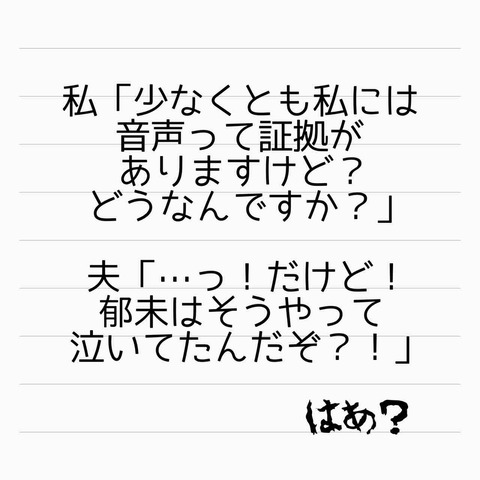 私「少なくとも私には
音声って証拠が
ありますけど？
どうなんですか？」
夫「…っ！だけど！
郁未はそうやって
泣いてたんだぞ？！」
はあ？